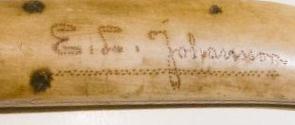 E. L. Johannson